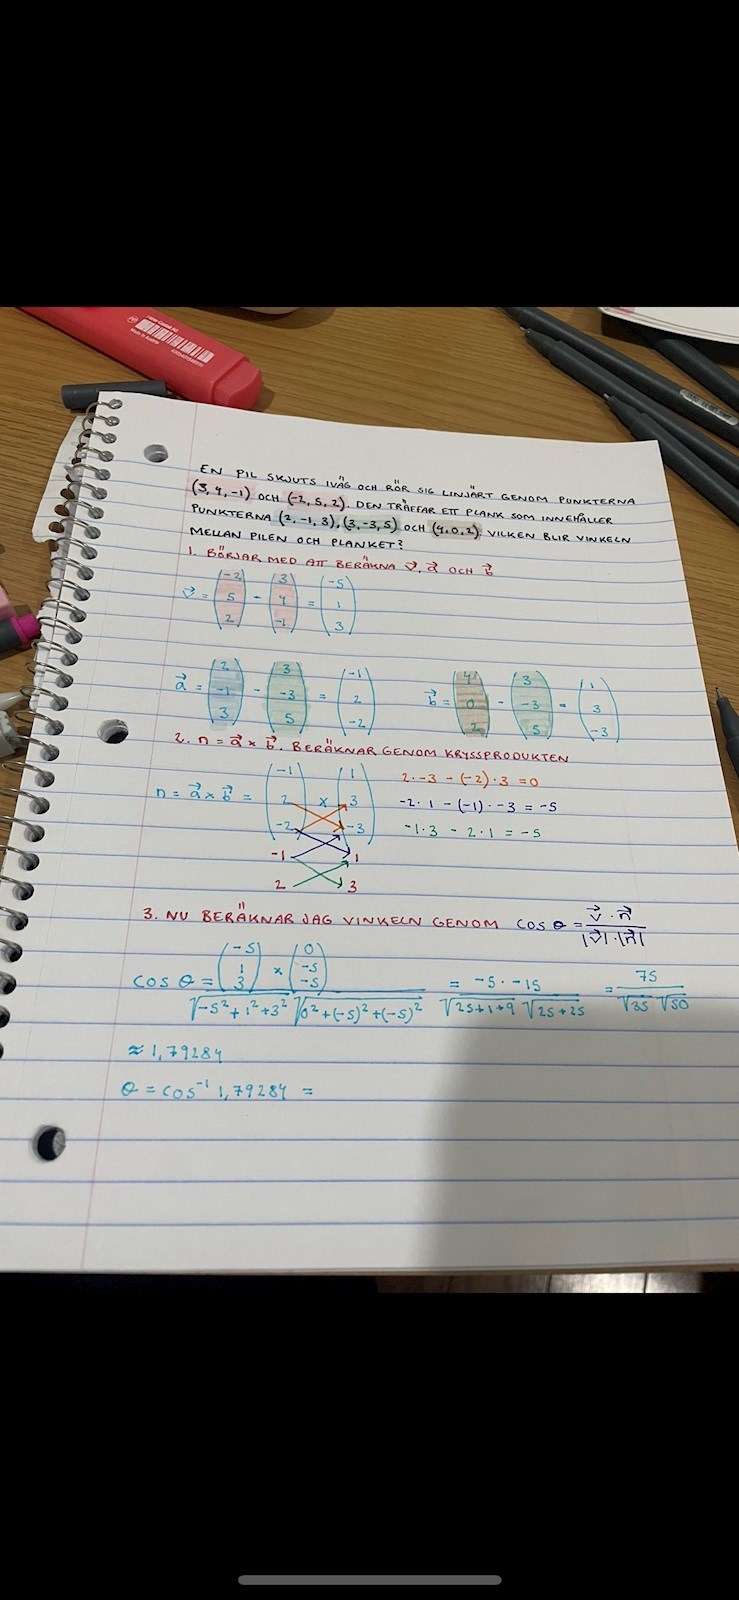 EN PIL SKJUTS IVÄG OCH RÖR SIG LINJÄRT GENOM PUNKTERNA
(3,4,-1) OCH (-2,5,2). DEN TRÄFFAR ETT PLANK SOM INNEHÅLLER
PUNKTERNA (2,-1,3), (3,-3,5) OCH (4,0,2). VILKEN BLIR VINKELN
MELLAN PILEN OCH PLANKET?
1. BÖRJAR MED ATT BERÄKNA v⃗, a⃗ OCH b⃗
v⃗ = (-2 5 2) - (3 4 -1) = (-5 1 3)
a⃗ = (2 -1 3) - (3 -3 5) = (-1 2 -2) b⃗ = (4 0 2) - (3 -3 5) = (1 3 -3)
2. n = a⃗ × b⃗. BERÄKNAR GENOM KRYSSPRODUKTEN
n = a⃗ × b⃗ = (-1 2 -2) × (1 3 -3)
-1 1
2 3
2·-3 - (-2)·3 = 0
-2·1 - (-1)·-3 = -5
-1·3 - 2·1 = -5
3. NU BERÄKNAR JAG VINKELN GENOM cos θ = v⃗·n⃗ / |v⃗|·|n⃗|
cos θ = (-5 1 3) × (0 -5 -5) / √-5²+1²+3² √0²+(-5)²+(-5)² = -5·-15 / √25+1+9 √25+25 = 75 / √35 √50
≈ 1,79284
θ = cos⁻¹ 1,79284 =